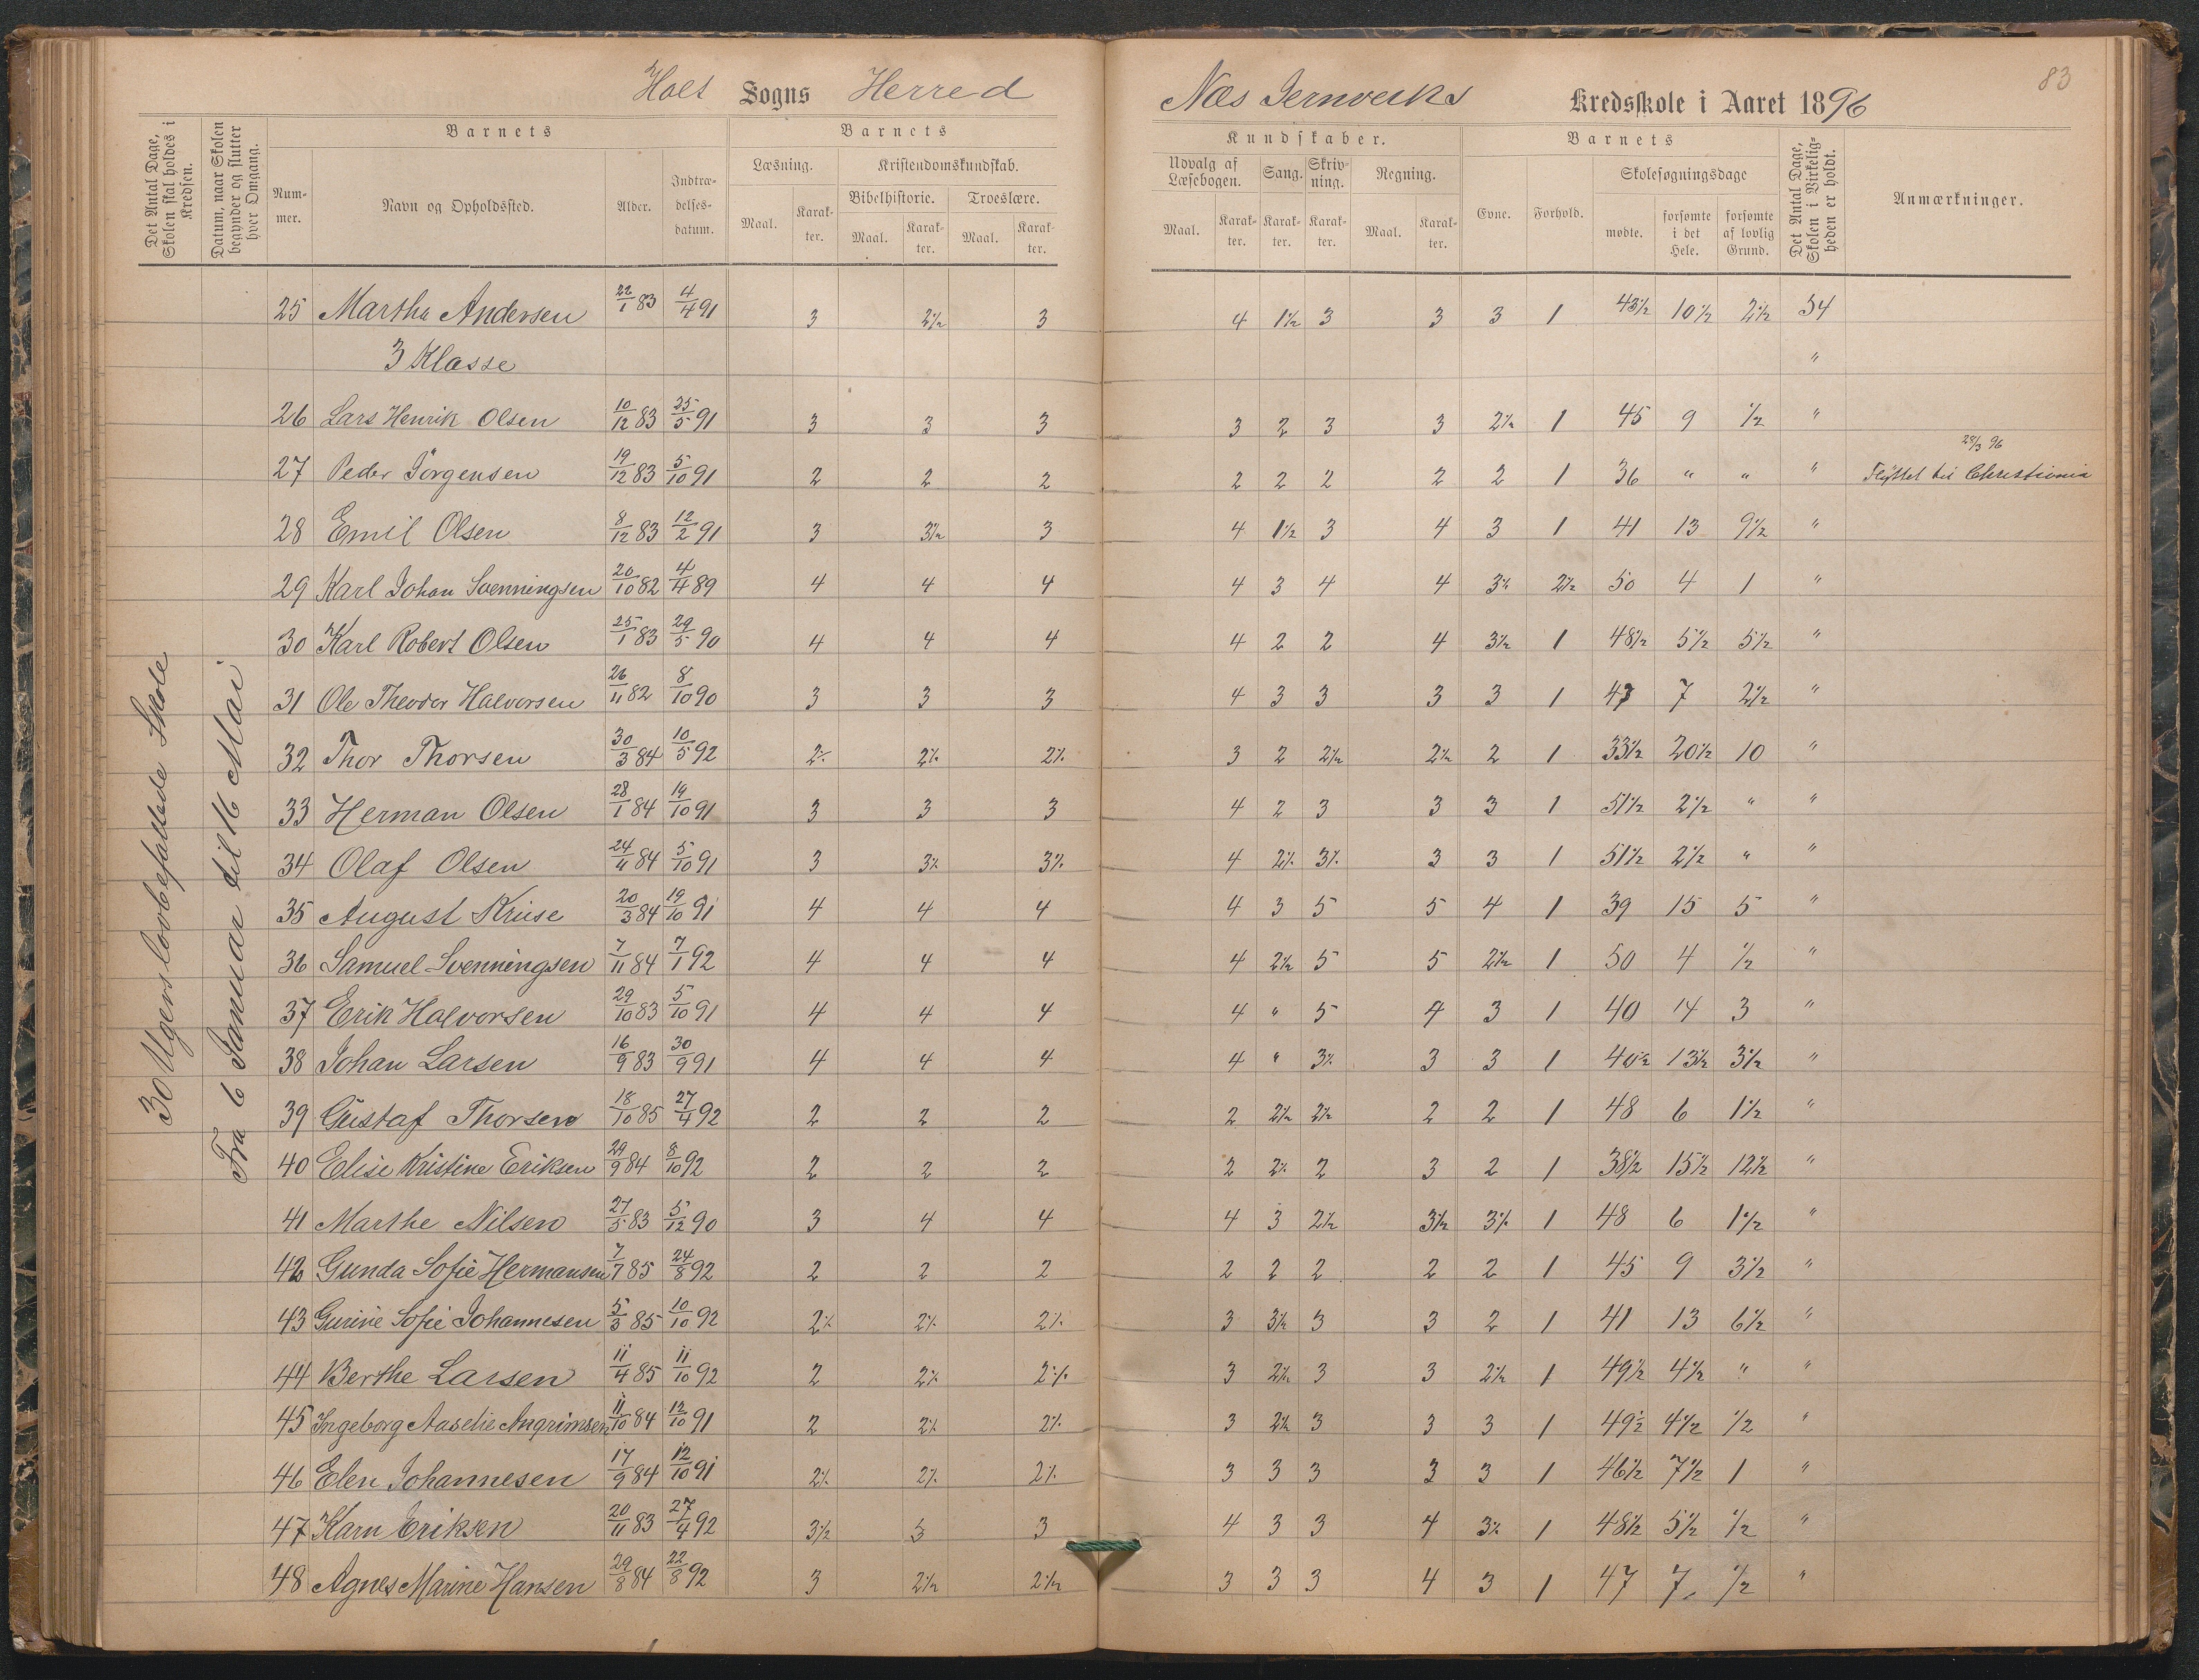 83
Holt Sogns Herred Næs Jernverks Kredsskole i Aaret 1896
Det Antal Dage, Skolen skal holdes i Kredsen.
Datum, naar Skolen begynder og slutter hver Omgang.
Barnets
Nummer.
Navn og Opholdssted.
Alder.
Indtrædelsesdatum.
Barnets
Læsning.
Maal.
Karakter.
Kristendomskundskab.
Bibelhistorie.
Maal.
Karakter.
Troeslære.
Maal.
Karakter.
Kundskaber.
Udvalg af Læsebogen.
Maal.
Karakter.
Sang.
Karakter.
Skrivning.
Karakter.
Regning.
Maal.
Karakter.
Barnets
Evne.
Forhold.
Skolesøgningsdage
mødte.
forsømte i det Hele.
forsømte af lovlig Grund.
Det Antal Dage, Skolen i Virkeligheden er holdt.
Anmærkninger.
30 Ugers lovbefalede Skole
Fra 6 Januar til 16 Mai
25 Martha Andersen 22/1 83 4/4 91 3 2½ 3 4 1½ 3 3 3 1 43½ 10½ 2½ 54
3 Klasse "
26 Lars Henrik Olsen 10/12 83 25/5 91 3 3 3 3 2 3 3 2½ 1 45 9 ½ "
27 Peder Jörgensen 19/12 83 5/10 91 2 2 2 2 2 2 2 2 1 36 " " " 28/3 96 Flyttet til Christiania
28 Emil Olsen 8/12 83 12/2 91 3 3½ 3 4 1½ 3 4 3 1 41 13 9½ "
29 Karl Johan Svenningsen 20/10 82 4/4 89 4 4 4 4 3 4 4 3½ 2½ 50 4 1 "
30 Karl Robert Olsen 25/1 83 29/5 90 4 4 4 4 2 2 4 3½ 1 48½ 5½ 5½ "
31 Ole Theodor Halvorsen 26/11 82 8/10 90 3 3 3 4 3 3 3 3 1 47 7 2½ "
32 Thor Thorsen 30/3 84 10/5 92 2½ 2½ 2½ 3 2 2½ 2½ 2 1 33½ 20½ 10 "
33 Herman Olsen 28/1 84 19/10 91 3 3 3 4 2 3 3 3 1 51½ 2½ " "
34 Olaf Olsen 24/11 84 5/10 91 3 3½ 3½ 4 2½ 3½ 3 3 1 51½ 2½ " "
35 August Kruse 20/3 84 19/10 91 4 4 4 4 3 5 5 4 1 39 15 5 "
36 Samuel Svenningsen 7/11 84 7/1 92 4 4 4 4 2½ 5 5 2½ 1 50 4 ½ "
37 Erik Halvorsen 29/10 83 5/10 91 4 4 4 4 " 5 4 3 1 40 14 3 "
38 Johan Larsen 16/9 83 30/9 91 4 4 4 4 " 3½ 3 3 1 40½ 13½ 3½ "
39 Gustaf Thorsen 18/10 85 27/4 92 2 2 2 2 2½ 2½ 2 2 1 48 6 1½ "
40 Elise Kristine Eriksen 29/9 84 8/10 92 2 2 2 2 2½ 2 3 2 1 38½ 15½ 12½ "
41 Marthe Nilsen 27/5 83 5/12 90 3 4 4 4 3 2½ 3½ 3½ 1 48 6 1½ "
42 Gunda Sofie Hermansen 7/7 85 24/8 92 2 2 2 2 2 2 2 2 1 45 9 3½ "
43 Gurine Sofie Johannesen 5/3 85 10/10 92 2½ 2½ 2½ 3 3½ 3 3 2 1 41 13 6½ "
44 Berthe Larsen 11/4 85 11/10 92 2 2½ 2½ 3 2½ 3 3 2½ 1 49½ 4½ " "
45 Ingeborg Aaselie Angrimsen 11/10 84 12/10 91 2 2½ 2½ 3 2½ 3 3 3 1 49½ 4½ ½ "
46 Elen Johannesen 17/9 84 12/10 91 2½ 2½ 2½ 3 3 3 3 3 1 46½ 7½ 1 "
47 Karn Eriksen 20/11 83 27/4 92 3½ 3 3 4 3 3 4 3½ 1 48½ 5½ ½ "
48 Agnes Marine Hansen 29/8 84 22/8 92 3 2½ 2½ 3 3 3 4 3 1 47 7 ½ "